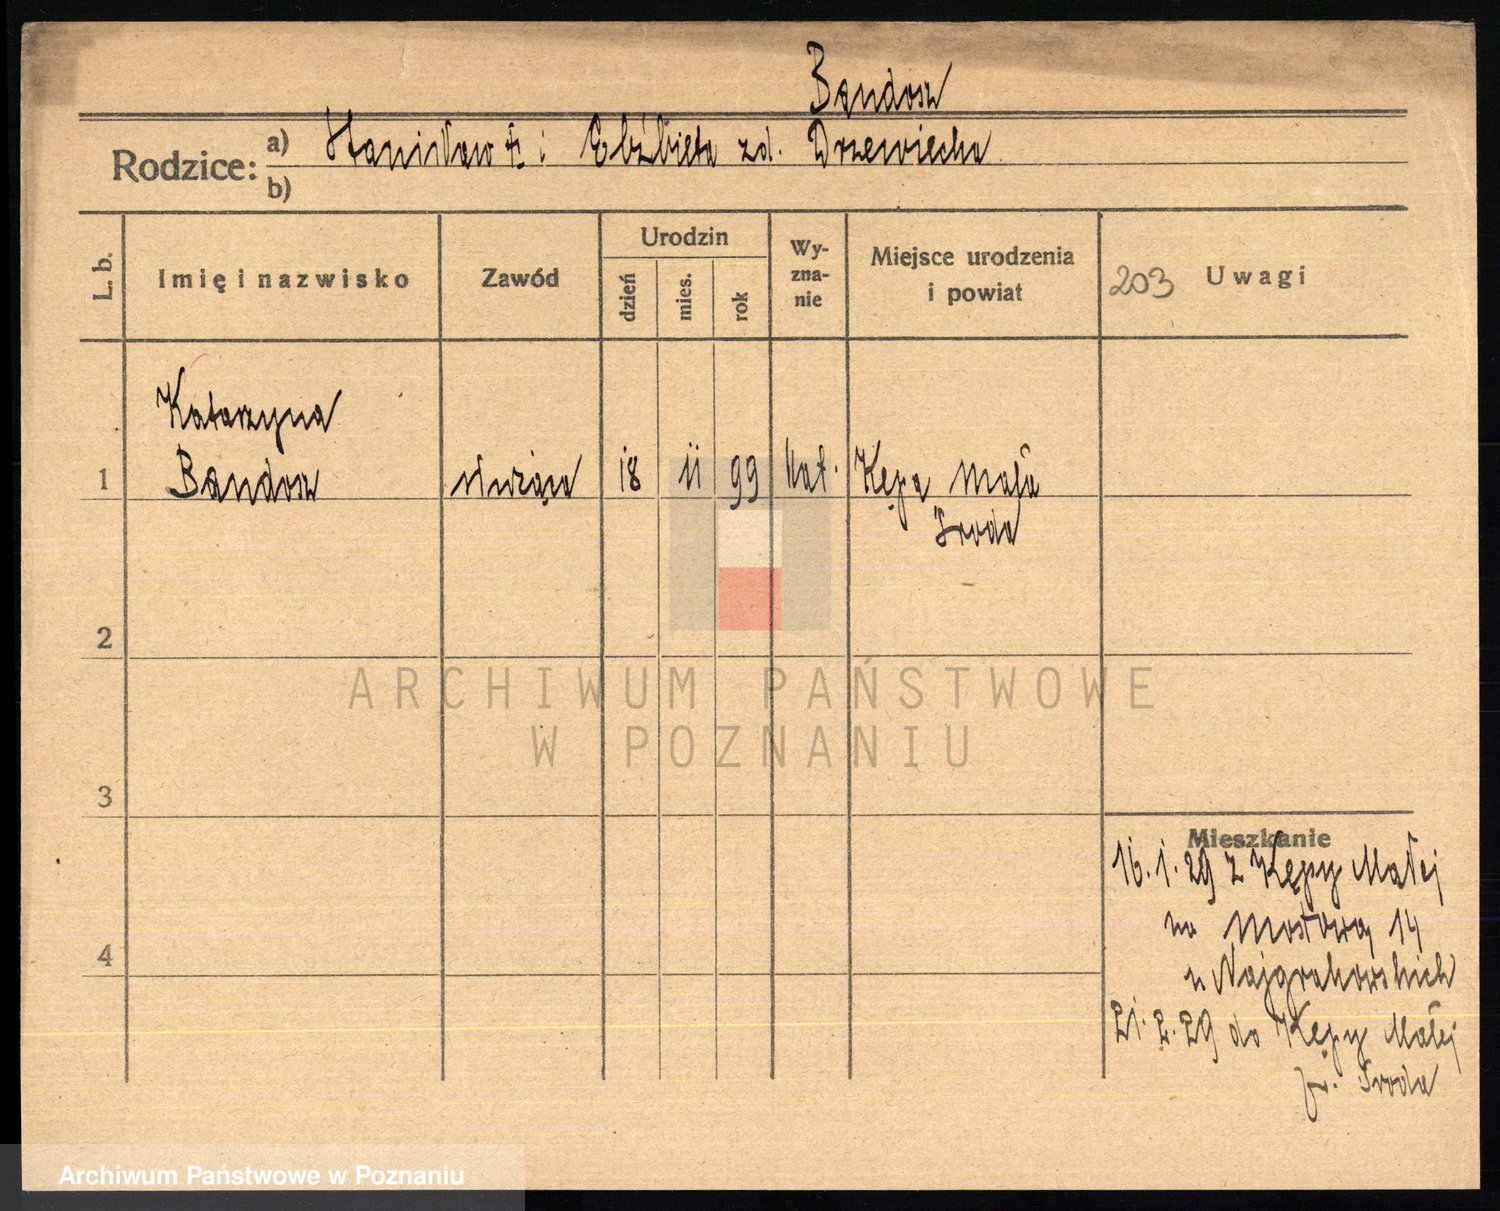 Bandosz
Rodzice: a) Stanisław i Elżbieta zd. Drzewiecka
b)
L. b.
Imię i nazwisko
Zawód
Urodzin
dzień
mies.
rok
Wy-
zna-
nie
Miejsce urodzenia
i powiat
203 Uwagi
Katarzyna
1 Bandosz służąca 18 11 99 kat. Kępa Mała
Środa
2
3
4
Mieszkanie
16.1.29 z Kępy Małej
na Mostową 14
u Najgrakowskich
21.2.29 do Kępy Małej
pw. Środa
ARCHIWUM PAŃSTWOWE
W POZNANIU
Archiwum Państwowe w Poznaniu